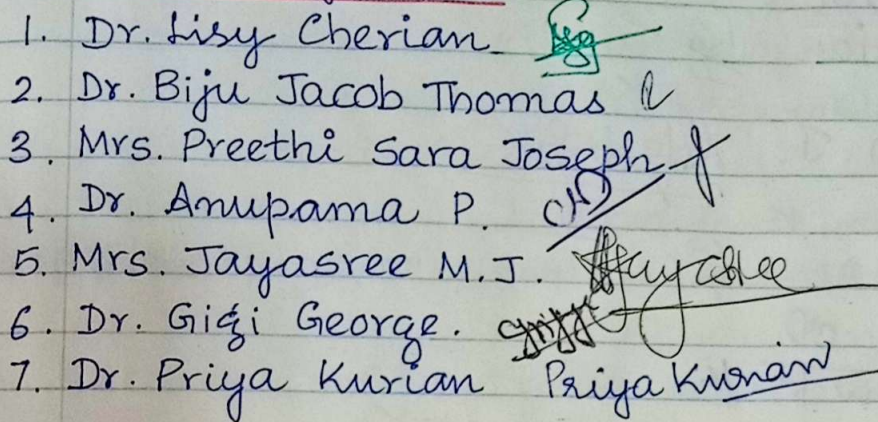 1. Dr. Lisy Cherian
2. Dr. Biju Jacob Thomas
3. Mrs. Preethi Sara Joseph
4. Dr. Anupama P.
5. Mrs. Jayasree M.J. Jayasree
6. Dr. Gigi George.
7. Dr. Priya Kurian Priya Kurian